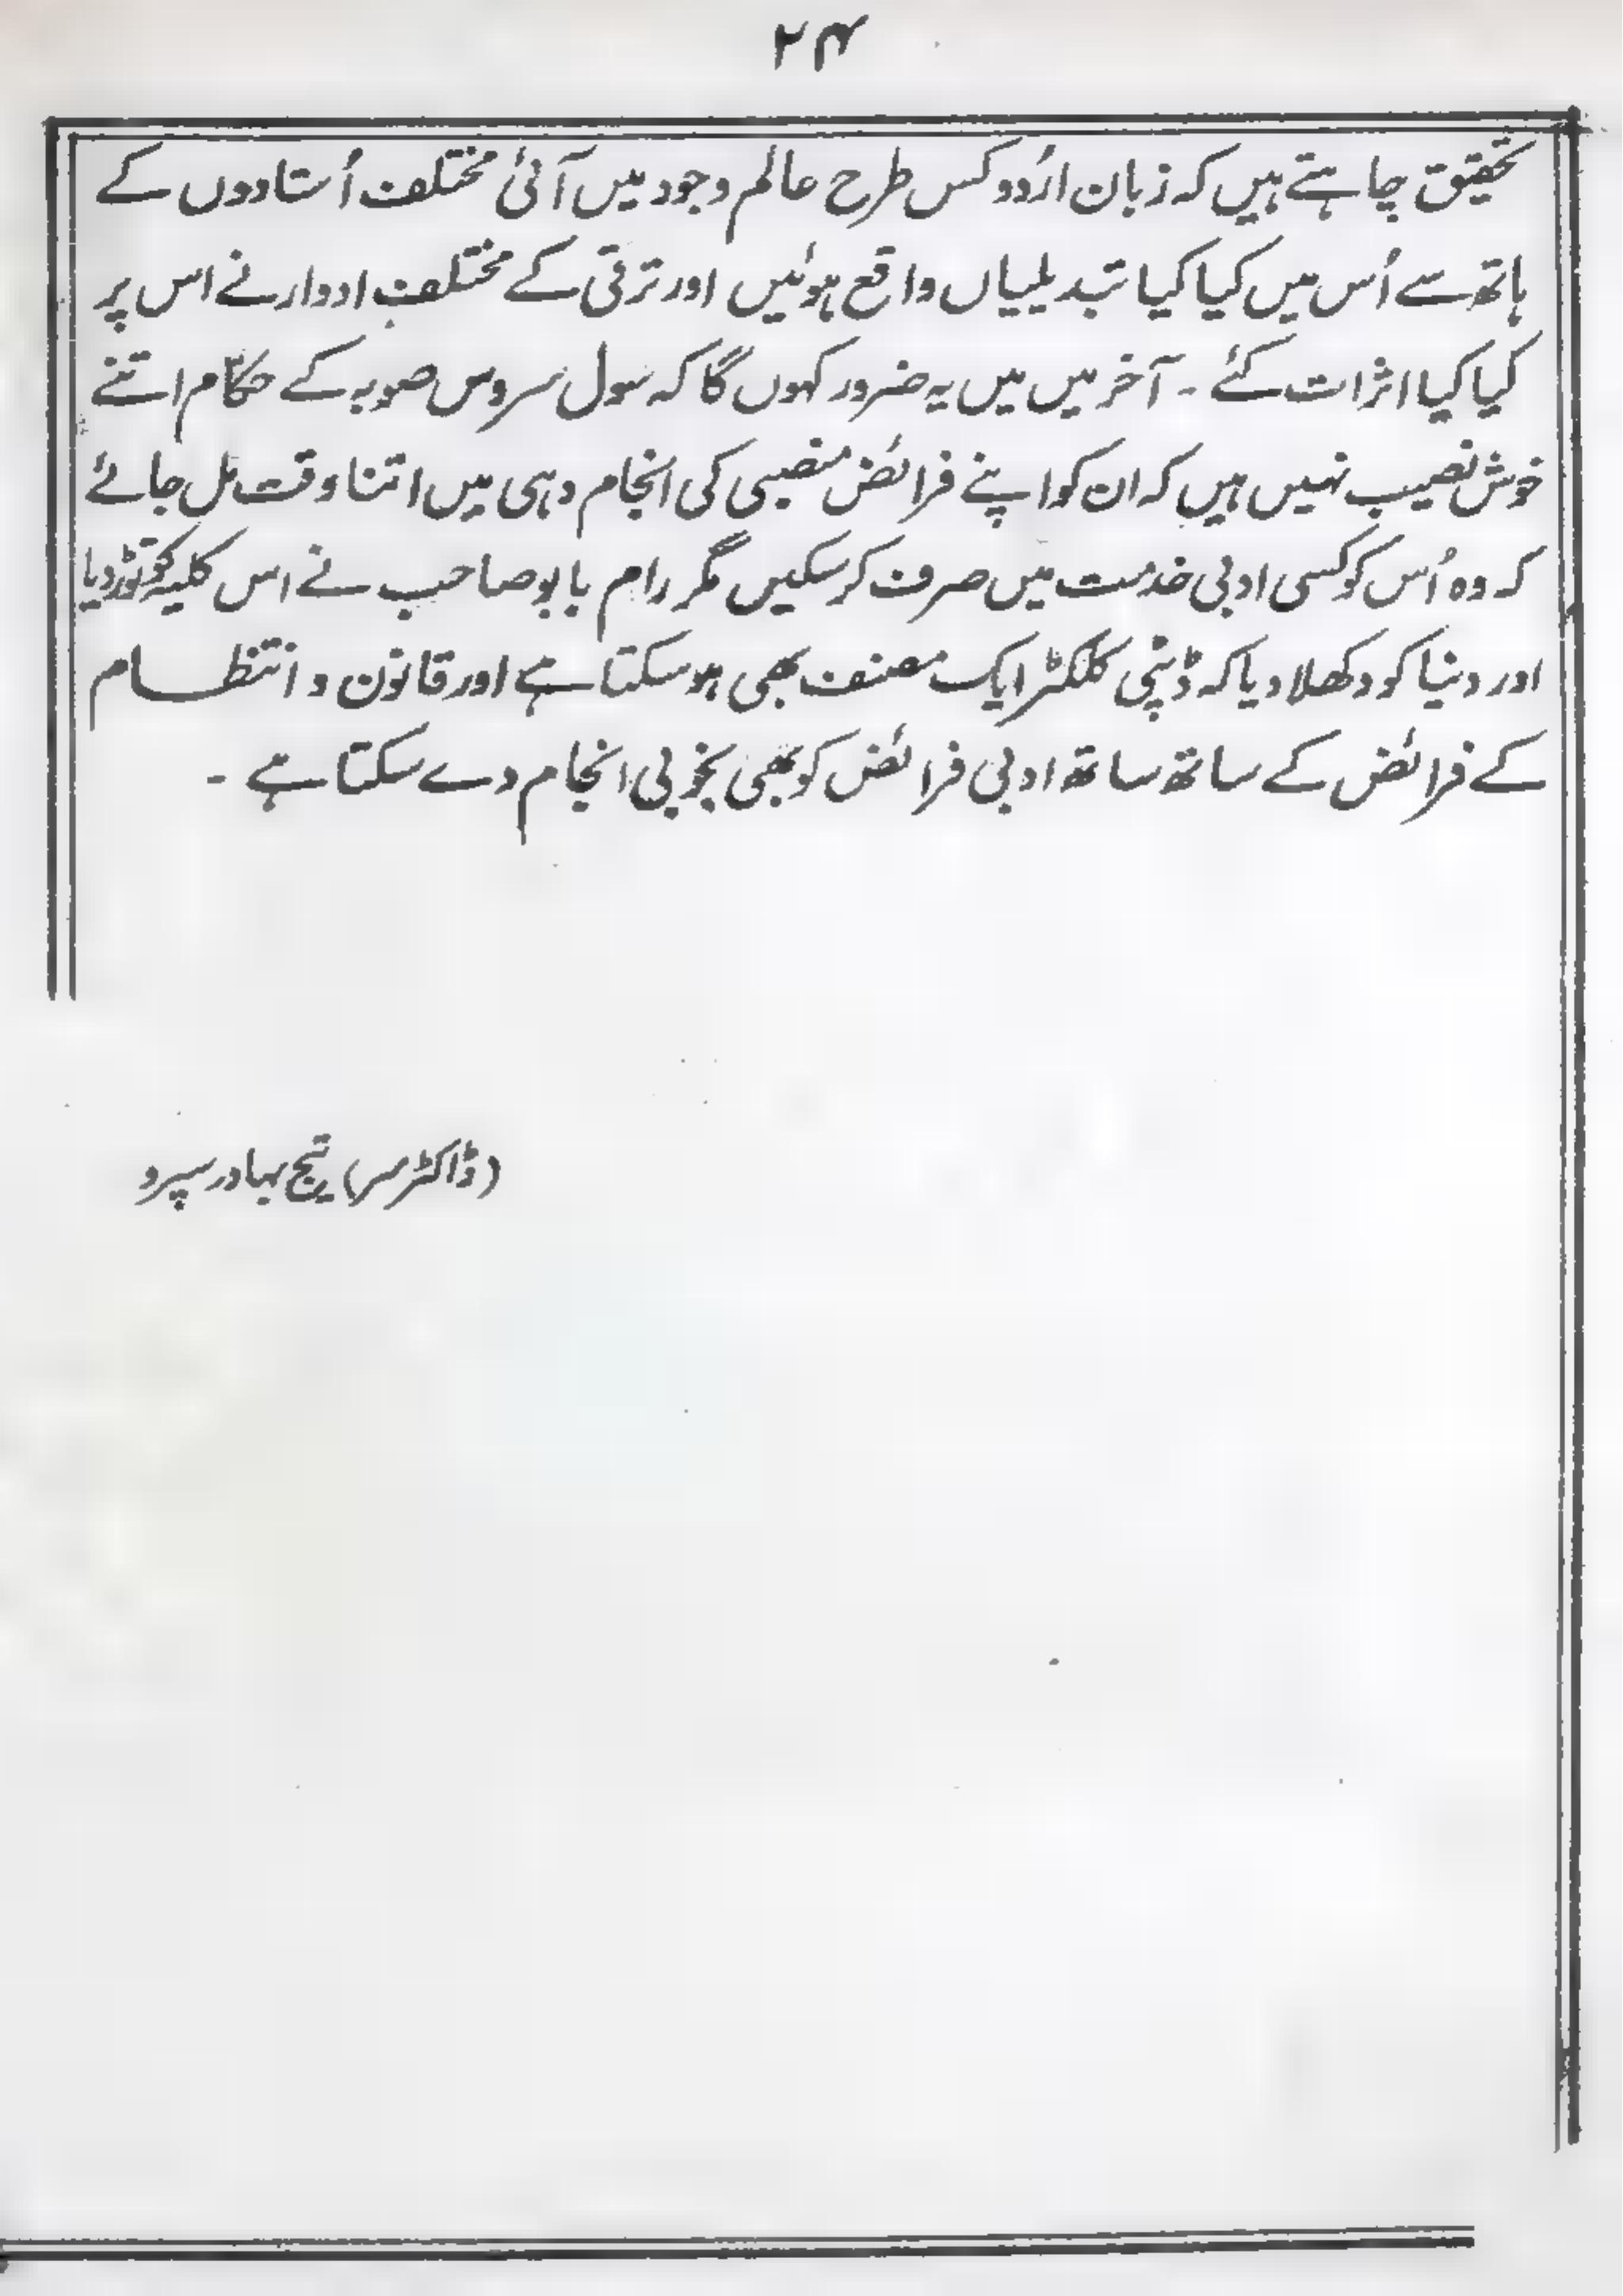 ۲۴
تحقیق چاہتے ہیں کہ زبان اردو کس طرح عالم وجود میں آئی مختلف اُستادوں کے
ہاتھ سے اُس میں کیا کیا تبدیلیاں واقع ہوئیں اور ترقی کے مختلف ادوار نے اس پر
کیا کیا اثرات کئے ۔ آخر میں میں یہ ضرور کہوں گا کہ سول سروس صوبہ کے حکّام اتنے
خوش نصیب نہیں ہیں کہ ان کو اپنے فرائض منصبی کی انجام دہی میں اتنا وقت مل جائے
کہ وہ اُس کو کسی ادبی خدمت میں صرف کر سکیں مگر رام بابو صاحب نے اس کلیہ کو توڑ دیا
اور دنیا کو دکھلا دیا کہ ڈپٹی کلکٹر ایک مصنف بھی ہو سکتا ہے اور قانون و انتظام
کے فرائض کے ساتھ ساتھ ادبی فرائض کو بھی بخوبی انجام دے سکتا ہے ۔
(ڈاکٹر سر) تیج بہادر سپرو